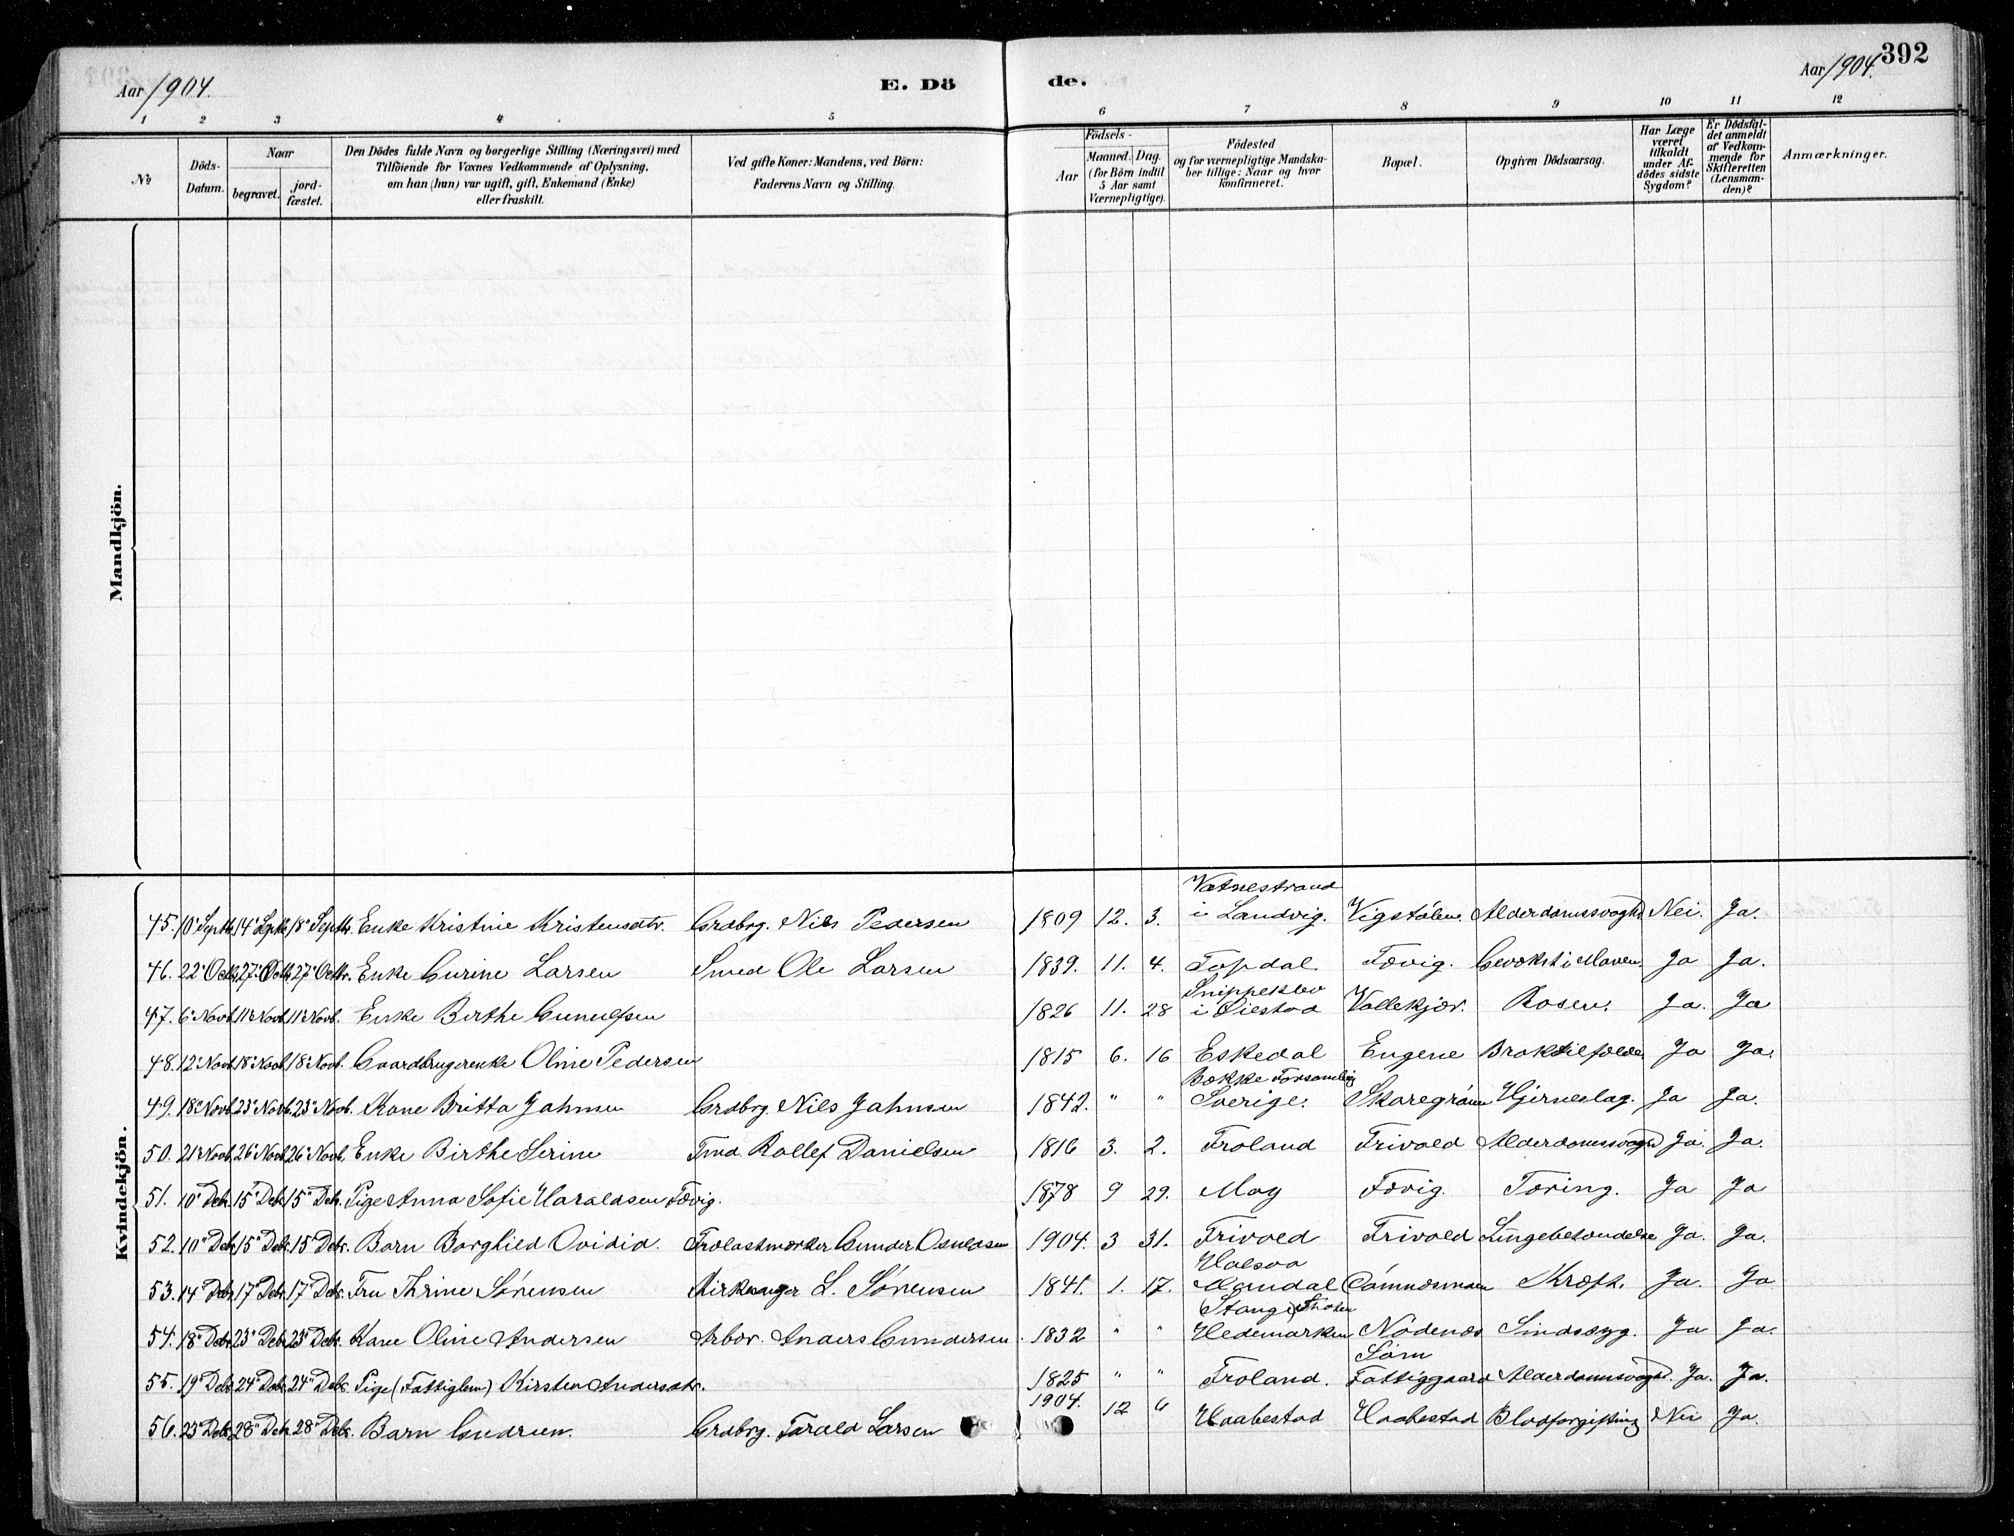 392
Aar 1904.
E. Dö de.
Aar 1904.
1 2 3 4 5 6 7 8 9 10 11 12
№
Döds-Datum.
Naar
begravet.
jord-fæstet.
Den Dödes fulde Navn og borgerlige Stilling (Næringsvei) med
Tilföiende for Voxnes Vedkommende af Oplysning,
om han (hun) var ugift, gift, Enkemand (Enke)
eller fraskilt.
Ved gifte Koner: Mandens, ved Börn:
Faderens Navn og Stilling.
Födsels-
Aar
Maaned. Dag.
(for Börn indtil
5 Aar samt
Værnepligtige).
Födested
og for værnepligtige Mandska-
ber tillige: Naar og hvor
konfirmeret.
Bopæl.
Opgiven Dödsaarsag.
Har Læge
været
tilkaldt
under Af-
dödes sidste
Sygdom?
Er Dödsfal-
det anmeldt
af Vedkom-
mende for
Skifteretten
(Lensman-
den)?
Anmærkninger.
Mandkjön.
Kvindekjön.
45. 10' Septb. 14' Septb. 18' Septb. Enke Kristine Kristensdtr. Grdbrg. Nils Pedersen 1809 12. 3. Vatnestrand i Landvig. Vigstølen. Alderdomssvaghd Nei. Ja.
46. 22' Octb. 27' Octb. 27' Octbr. Enke Gurine Larsen Smed Ole Larsen 1839. 11. 4. Topdal Fævig. Gevækst i Maven. Ja Ja.
47. 6' Novb. 11' Novb. 11' Novb. Enke Birthe Gunulfsen 1826 11. 28 Snippekbo i Øiestad Vallekjær. Rosen. Ja. Ja
48. 12' Novb. 18' Novb. 18' Novb. Gaardbrugerenke Oline Pedersen 1815 6. 16 Eskedal Engene Braktilfælde Ja Ja.
49. 18' Novb. 23' Novb. 23' Novb. Kone Britta Jahnsen Grdbrg. Nils Jahnsen 1842. " " Bokke Forsamling Sverige. Skaregrøm Hjerneslag. Ja Ja.
50. 21' Novb. 26' Novb. 26' Novb. Enke Birthe Serine Tmd. Rollef Danielsen 1816 3. 2. Froland Frivold Alderdomssvaghd Ja. Ja.
51. 10' Dcb. 15' Deb. 15' Deb. Pige Anna Sofie Haraldsen Fævig. 1878 9 29. Moy Fævig. Tæring. Ja Ja
52. 10" Deb. 15" Deb. 15' Debr. Barn Borghild Ovidia. Frelastmærker Gunder Osuldsen 1904. 3 31. Frivold Frivold Lungebetændelse Ja. Ja.
53. 14' Deb. 17' Deb. 17' Debr. Fru Thrine Sørensen Kirkesanger L. Sørensen 1841. 1. 17. Halsaa Mandal Dømnesmoen Kræft. Ja. Ja
54. 18' Debr. 23' Deb. 23' Deb. Kone Oline Andersen Arbdr. Anders Gundersen 1832 " " Stange Hedemarken Nødenæs Sindssyg. Ja Ja.
55. 19" Deb. 24" Deb. 24" Deb. Pige (Fattiglem) Kirsten Andersdtr. 1825 " " Froland. Søm Fattiggaard Alderdomssvaghd. Ja. Ja.
56. 23' Deb. 28" Deb. 28' Debr. Barn Gudrun. Grdbrg. Torald Larsen 1904. 12 6 Haabestad Haabestad Blodforgiftning Nei Ja.